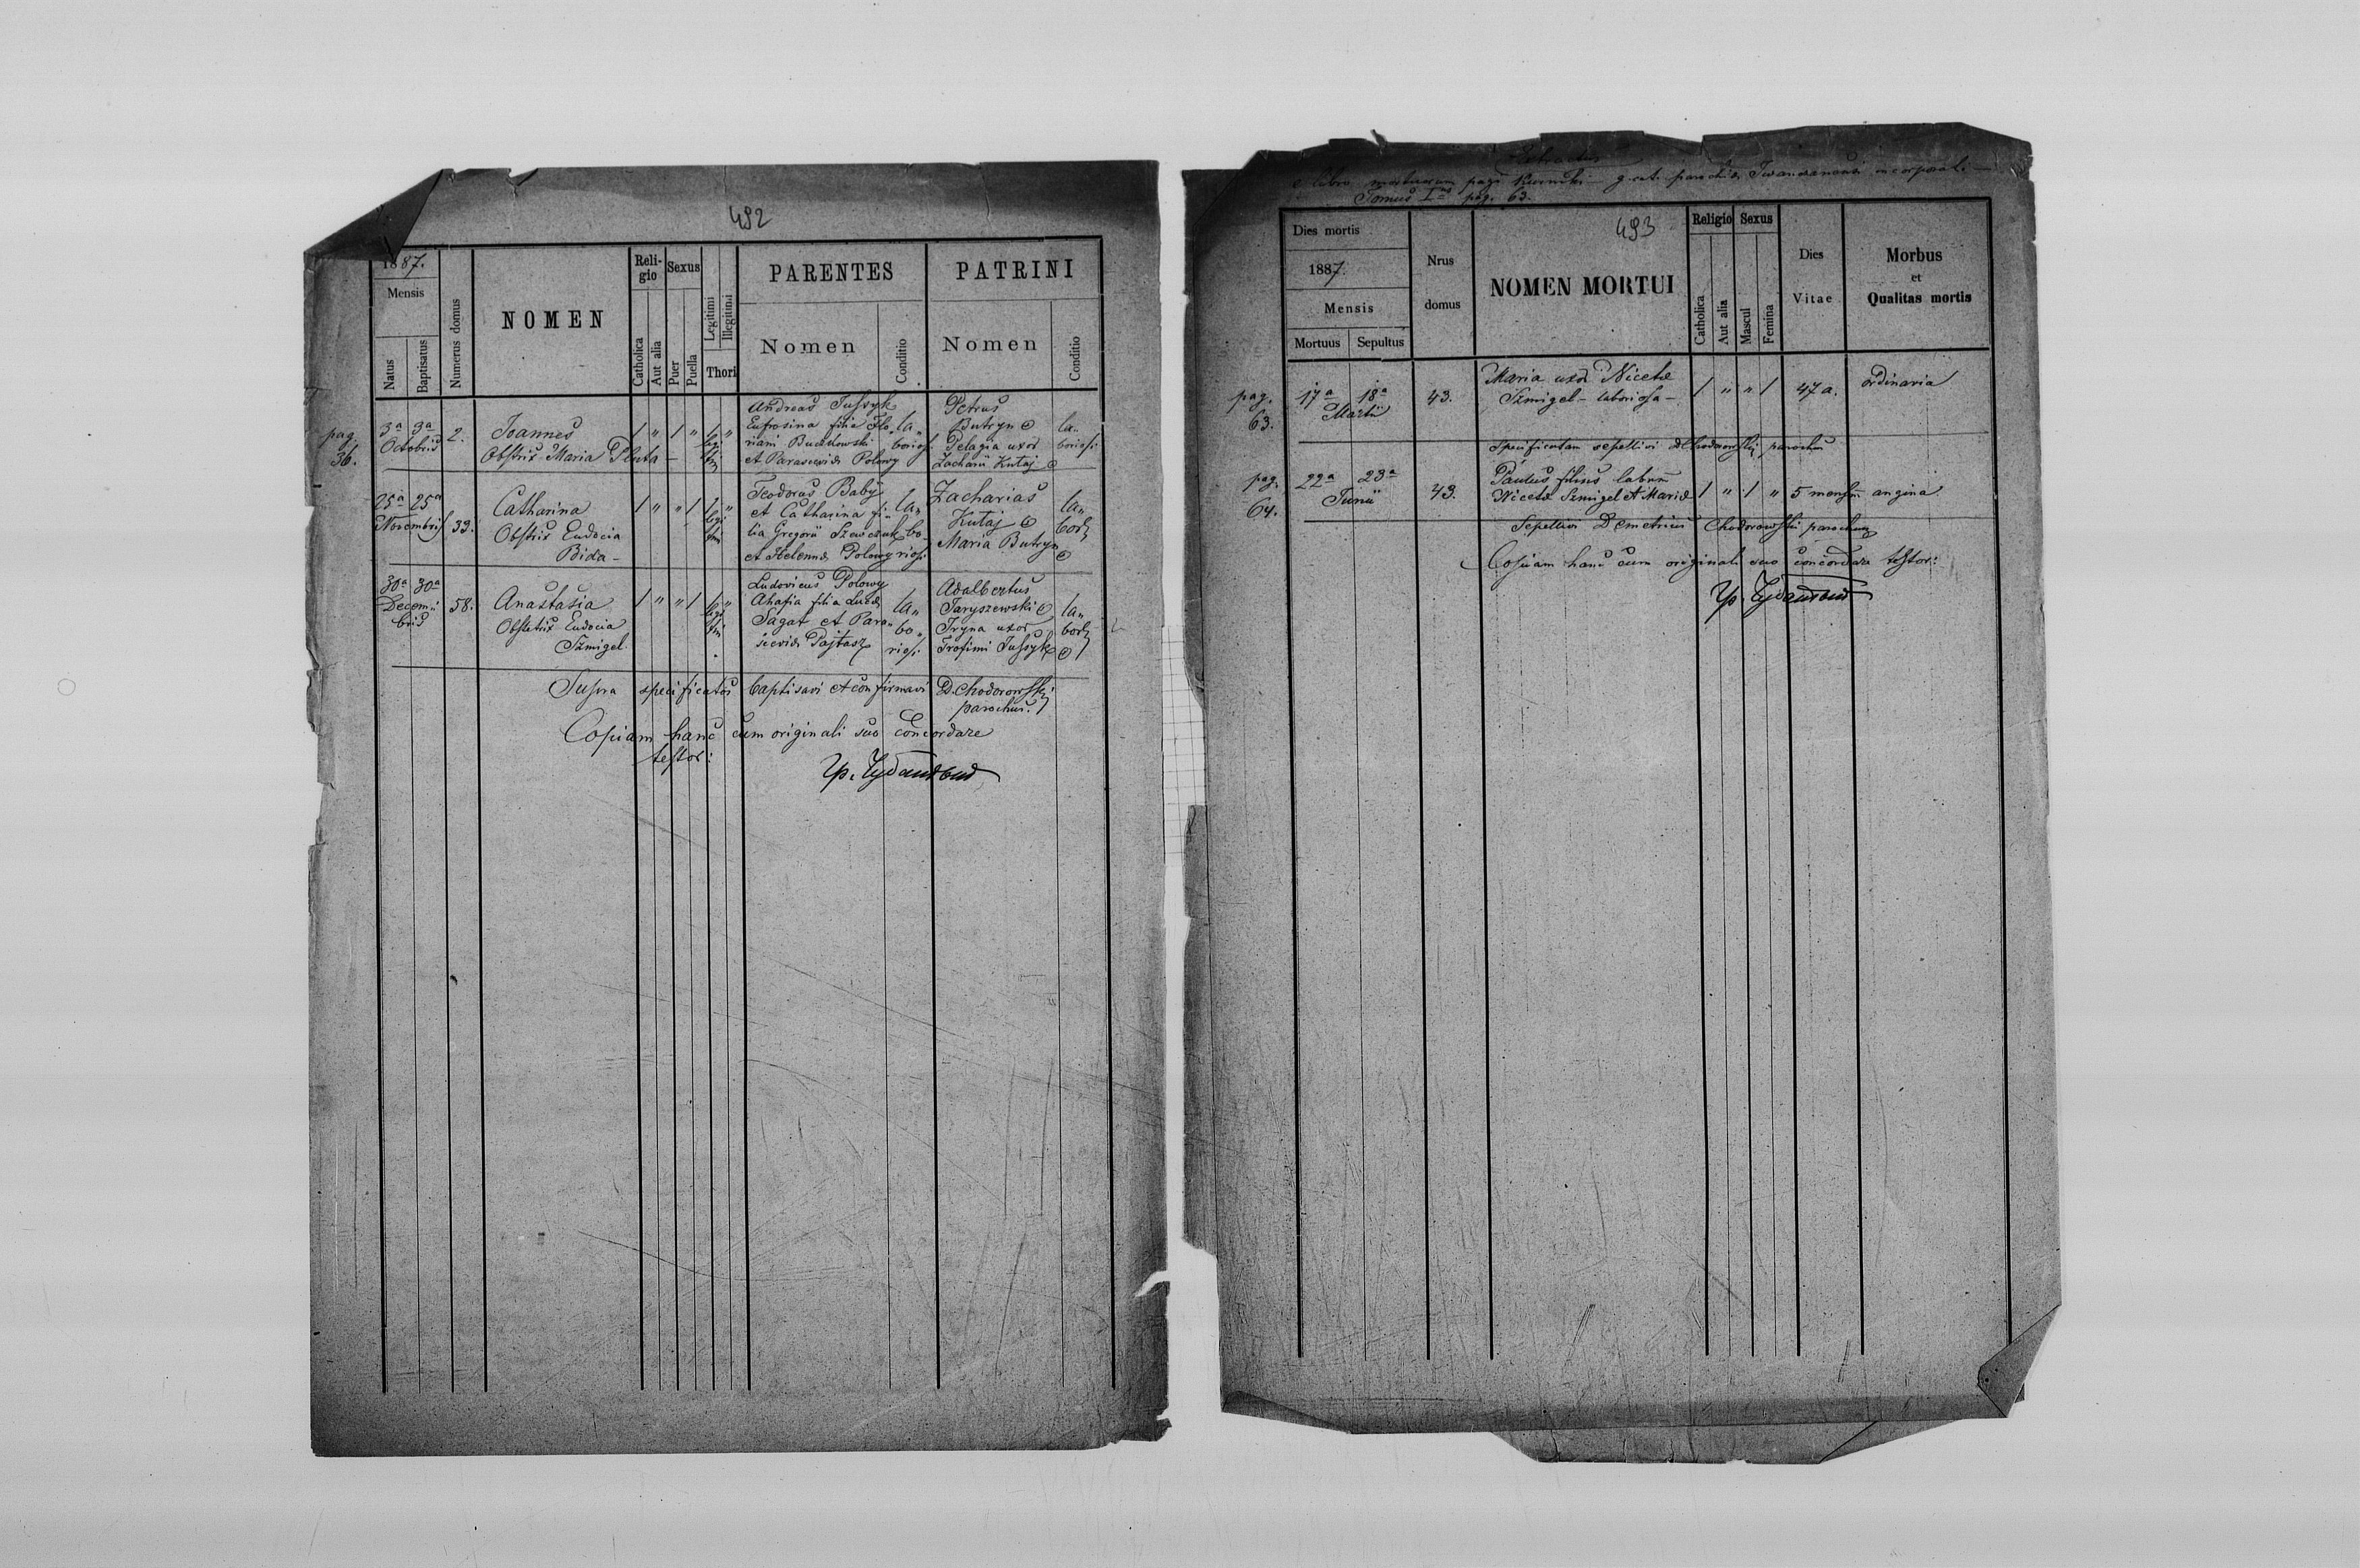 492
1887.
Mensis
Natus
Baptisatus
Numerus domus
NOMEN
Reli-
gio
Catholica
Aut alia
Sexus
Puer
Puella
Legitimi
Illegitimi
Thori
PARENTES
Nomen
Conditio
PATRINI
Nomen
Conditio
pag.
36.
3ª 3ª
Octobris
2.
Joannes
Obstrix Maria Pluta -
1 " 1 "
Andreas Jussyk
Eufrosina filia Flo-
riani
et Parascevia Polowy
la-
boriosi
Petrus
Butryn
Pelagia uxor
Zacharii Kutaj
la-
boriosi
25ª 25ª
Novembris
33.
Catharina
Obstrix Eudocia
Bida -
1 " " 1
Teodorus Baby
et Catharina fi-
lia Gregorii Szewczuk
et Helenna Polowy
la-
bo-
riosi
Zacharias
Kutaj
Maria Butryn
la-
bor
30ª 30ª
Decem-
bris
58.
Anastasia
Obstetrix Eudocia
Szmigel
1 " " 1
Ludovicus Polowy
Ahafia filia Lucæ
Sagat et Para-
scevia Pajtasz
la-
bo-
riosi
Adalbertus
Taryszewski
Iryna uxor
Trofimi Jussyk
la-
bor
Supra specificatos baptisavi et confirmavi D. Chodorowski
parochus.
Copiam hanc cum originali suo concordare
testor:
e libro mortuorum pagi g. cat.
Tomus I pag. 63.
493
Dies mortis
1887.
Mensis
Mortuus
Sepultus
Nrus
domus
NOMEN MORTUI
Religio
Catholica
Aut alia
Sexus
Mascul
Femina
Dies
Vitae
Morbus
et
Qualitas mortis
pag.
63.
17ª 18ª
Martii
43.
Maria uxor Nicetæ
Szmigel - laboriosa -
1 " " 1
47 a.
ordinaria
specificatam sepelivi D Chodorowski parochus
pag.
64.
22ª 23ª
Junii
43.
Paulus filius labor
Nicetæ Szmigel et Mariæ
1 " 1 "
5 mensium
angina
Sepelivi Demetrius Chodorowski parochus
Copiam hanc cum originali suo concordare testor: